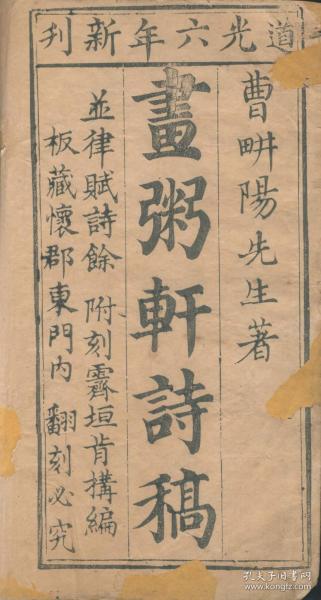 道光六年新刊
曹畊陽先生著
畫粥軒詩稿
並律賦詩餘 附刻霽垣肯構編
板藏懷郡東門內 翻刻必究
孔夫子旧书网